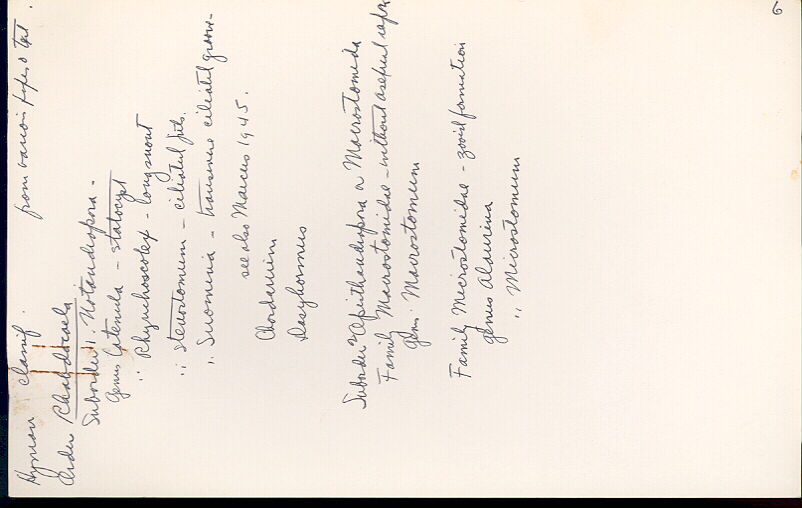 Hyman classif. from various papers & text.
Order Rhabdocoela
Suborder 1. Notandropora.
Genus Catenula - statocyst
" Rhynchoscolex - long snout
" Stenostomum - ciliated pits.
" Suomina - transverse ciliated groove.
see also Marcus 1945.
Chordarium
Dasyhormus
Suborder 2 Opisthandropora or Macrostomida
Family Macrostomidae - without asexual repr
Genus: Macrostomum
Family Microstomidae - zooid formation
genus Alaurina
" Microstomum
6